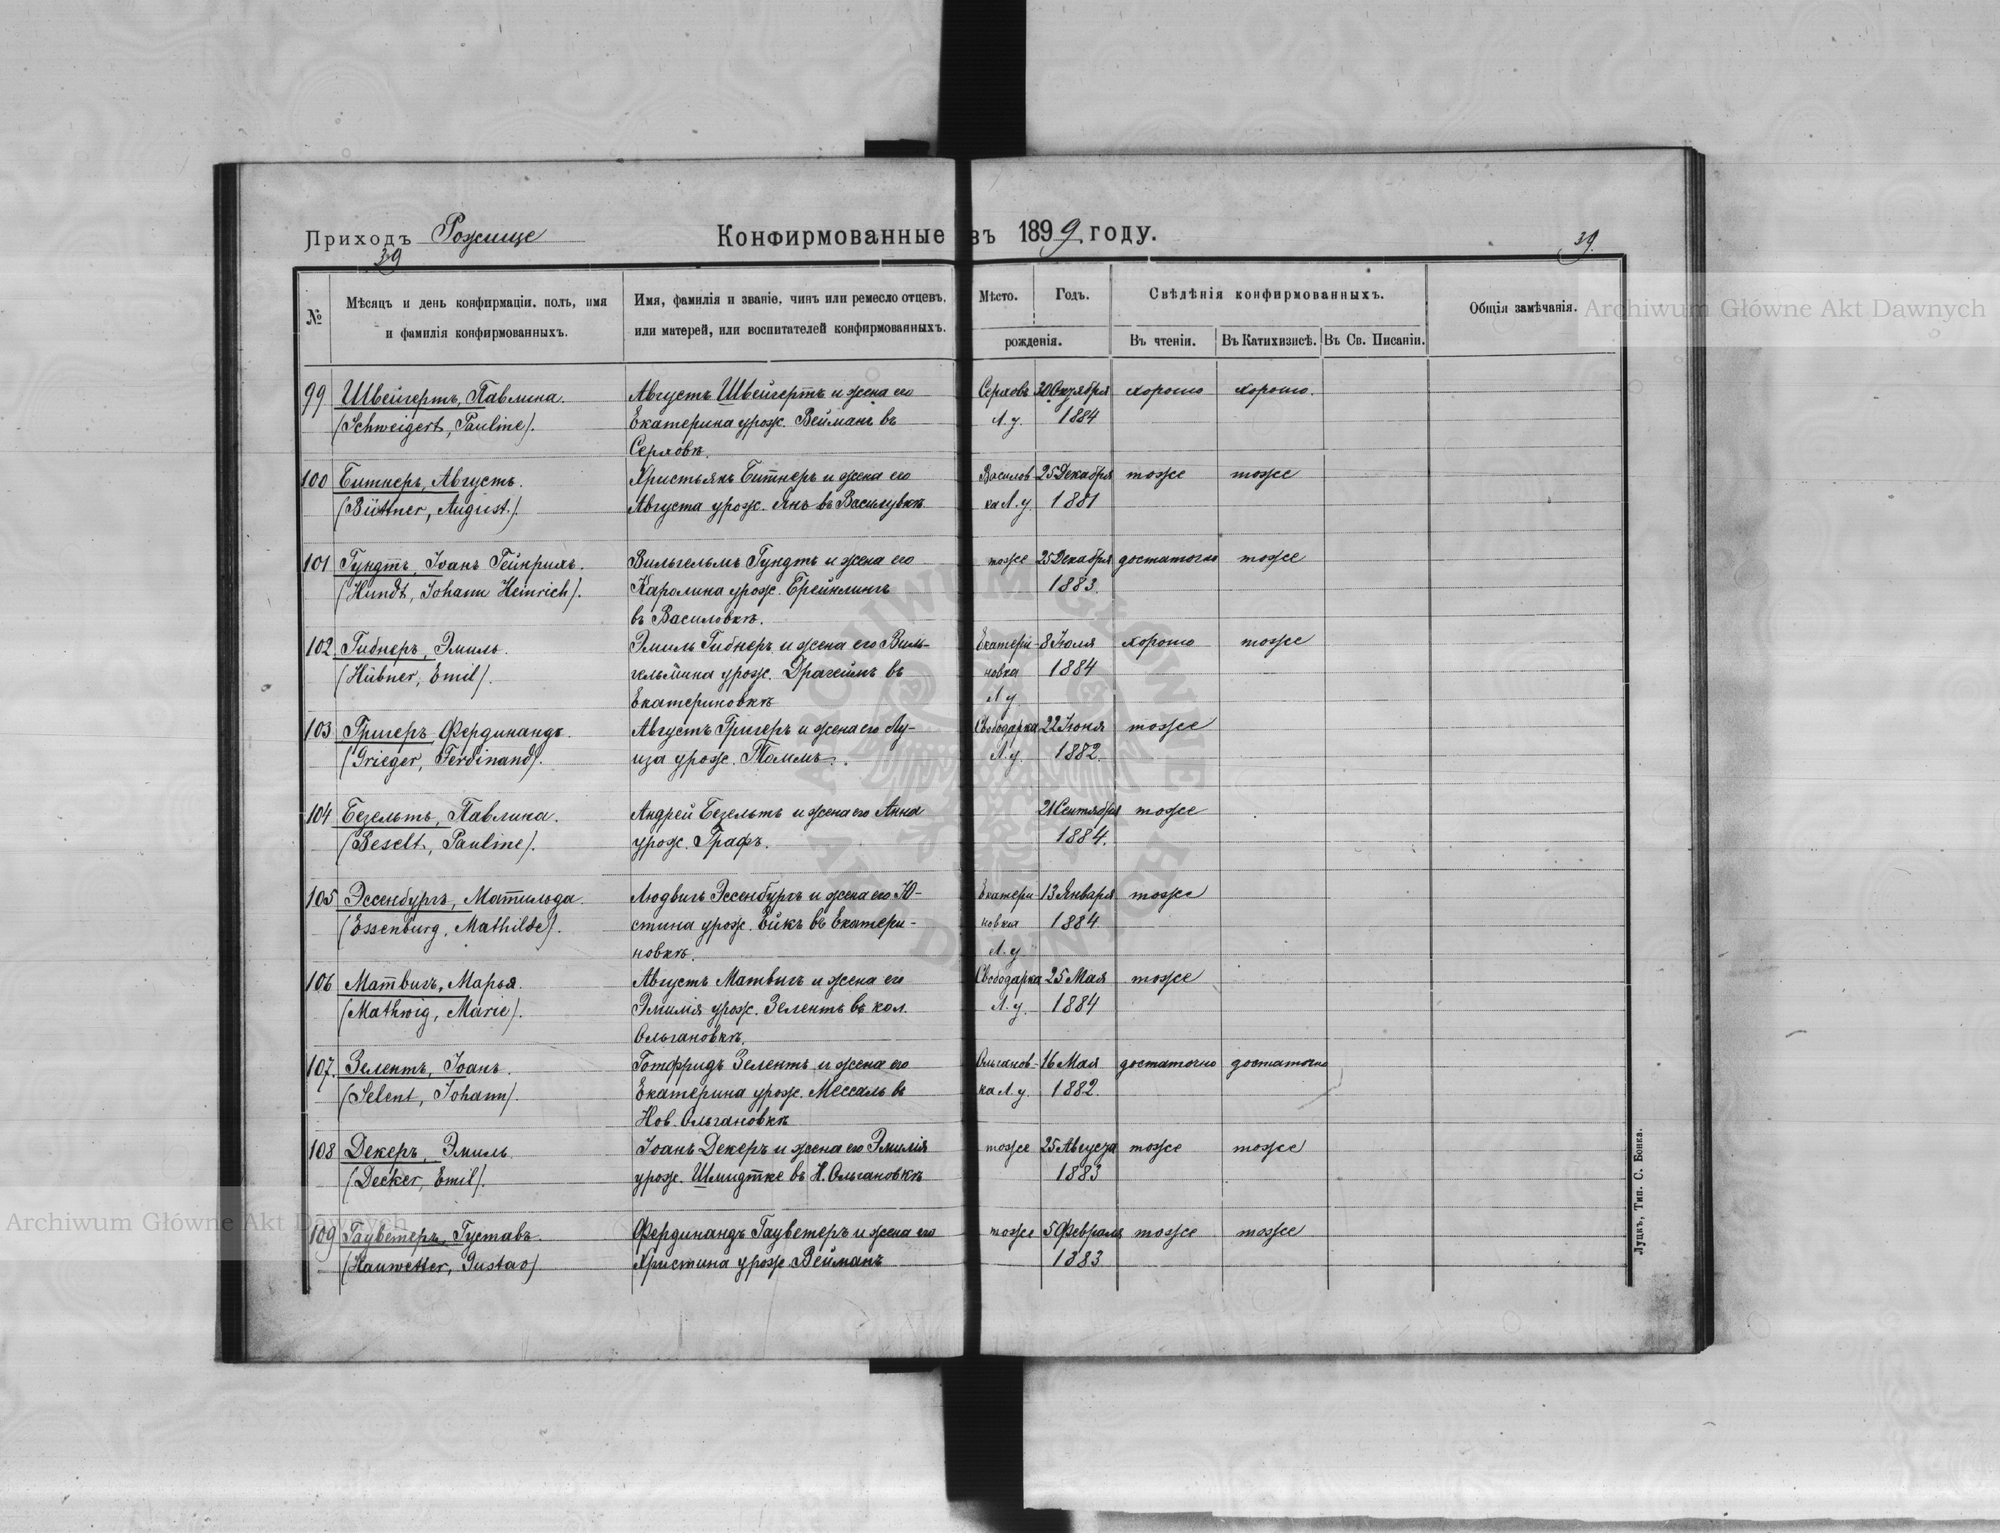 Приходъ Рожище
Конфирмованные въ 1899 году.
39
39.
№
Мѣсяцъ и день конфирмаціи, полъ, имя
и фамилія конфирмованныхъ.
Имя, фамилія и званіе, чинъ или ремесло отцевъ,
или матерей, или воспитателей конфирмованныхъ.
Мѣсто.
Годъ.
рожденія.
Свѣдѣнія конфирмованныхъ.
Въ чтеніи.
Въ Катихизисѣ.
Въ Св. Писаніи.
Общія замѣчанія.
99 Швейгертъ, Павлина. Августъ Швейгертъ и жена его Серховъ 30 Октября хорошо хорошо.
(Schweigert, Pauline). Екатерина урож. Вейманъ въ Л. у. 1884
Серховѣ.
100 Битнеръ, Августъ. Христьянъ Битнеръ и жена его Василов 25 Декабря тоже тоже
(Büttner, August.). Августа урож. Янъ въ Василувкѣ. ка Л. у. 1881
101 Гундтъ, Іоанъ Гейнрихъ. Вильгельмъ Гундтъ и жена его тоже 25 Декабря достаточно тоже
(Hundt, Johann Heinrich). Каролина урож. Брейнлингъ 1883.
въ Василовкѣ.
102 Гибнеръ, Эмиль. Эмиль Гибнеръ и жена его Виль- Екатери- 8 Іюля хорошо тоже
(Hübner, Emil). гельмина урож. Драгеймъ въ новка 1884
Екатериновкѣ Л. у
103 Григеръ, Фердинандъ. Августъ Григеръ и жена его Лу- Свободарка 22 Іюня тоже
(Grieger, Ferdinand). иза урож. Толмъ. Л. у. 1882.
104 Безельтъ, Павлина. Андрей Безельтъ и жена его Анна 21 Сентября тоже
(Beselt, Pauline). урож. Графъ. 1884.
105 Эссенбургъ, Матильда. Людвигъ Эссенбургъ и жена его Ю- Екатери- 13 Января тоже
(Essenburg, Mathilde). стина урож. Ейкъ въ Екатери- новка 1884
новкѣ. Л. у
106 Матвигъ, Марья. Августъ Матвигъ и жена его Свободарка 25 Мая тоже
(Mathwig, Marie). Эмилія урож. Зелентъ въ кол. Л. у. 1884
Ольгановкѣ.
107. Зелентъ, Іоанъ. Готфридъ Зелентъ и жена его Ольганов- 16 Мая достаточно достаточно
(Selent, Johann). Екатерина урож. Мессалъ въ ка Л. у. 1882.
Нов. Ольгановкѣ
108 Декеръ, Эмиль Іоанъ Декеръ и жена его Эмилія тоже 25 Августа тоже тоже
(Decker, Emil). урож. Шмидтке въ Н. Ольгановкѣ 1883
109 Гауветеръ, Густавъ. Фердинандъ Гауветеръ и жена его тоже 5 Февраля тоже тоже
(Hauwetter, Gustav) Христина урож. Вейманъ 1883
Луцкъ, Тип. С. Бонка.
Archiwum Główne Akt Dawnych
Archiwum Główne Akt Dawnych
ARCHIWUM GŁÓWNE AKT DAWNYCH